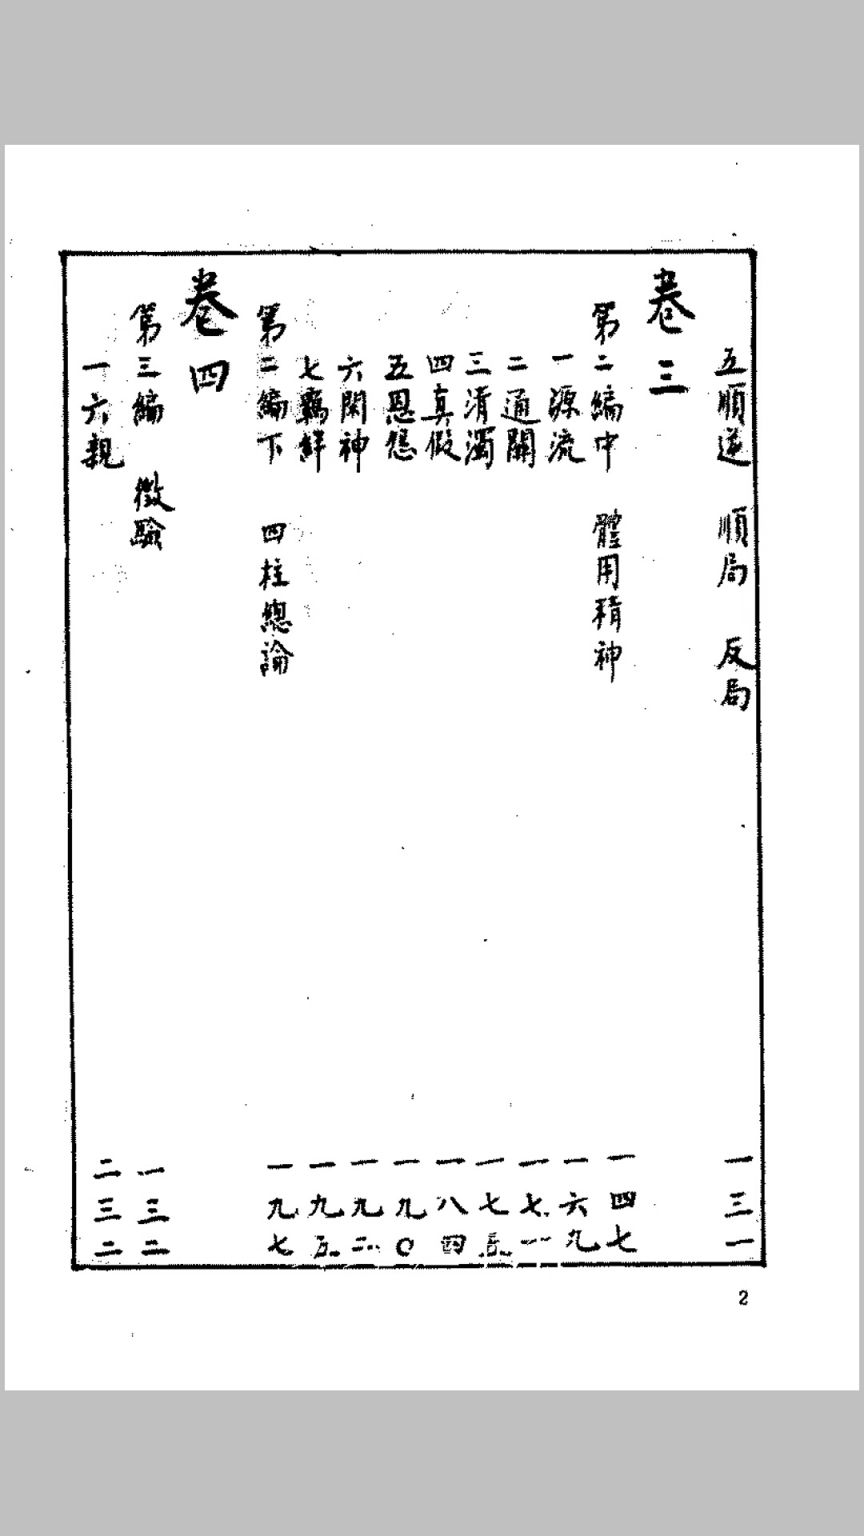 五順逆　順局　反局　一三一
卷三
第二編中　體用精神　一四七
一源流　一六九
二通關　一七一
三清濁　一七五
四真假　一八四
五恩怨　一九〇
六閑神　一九二
七羈絆　一九五
第二編下　四柱總論　一九七
卷四
第三編　徵驗　一三二
一六親　二三二
2